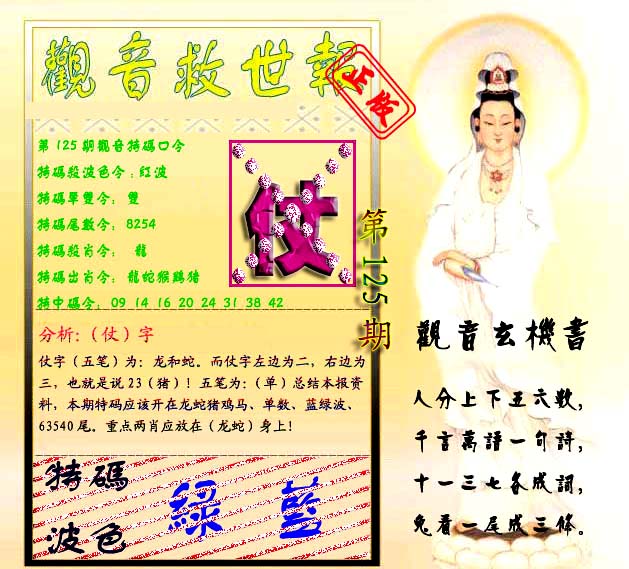 觀音救世報
正版
第125期觀音特碼口令
特碼殺波色令：紅波
特碼單雙令： 雙
特碼尾數令： 8254
特碼殺肖令： 龍
特碼出肖令： 龍蛇猴鷄猪
特中碼令： 09 14 16 20 24 31 38 42
仗
第125期
分析:（仗）字
仗字（五笔）为：龙和蛇。而仗字左边为二，右边为
三，也就是说 23（猪）！五笔为：（单）总结本报资
料，本期特码应该开在龙蛇猪鸡马、单数、蓝绿波、
63540 尾。重点两肖应放在（龙蛇）身上！
特碼
波色
綠 藍
觀音玄機書
人分上下五六數，
千言萬語一句詩，
十一三七各成詞，
兔看一尾成三條。